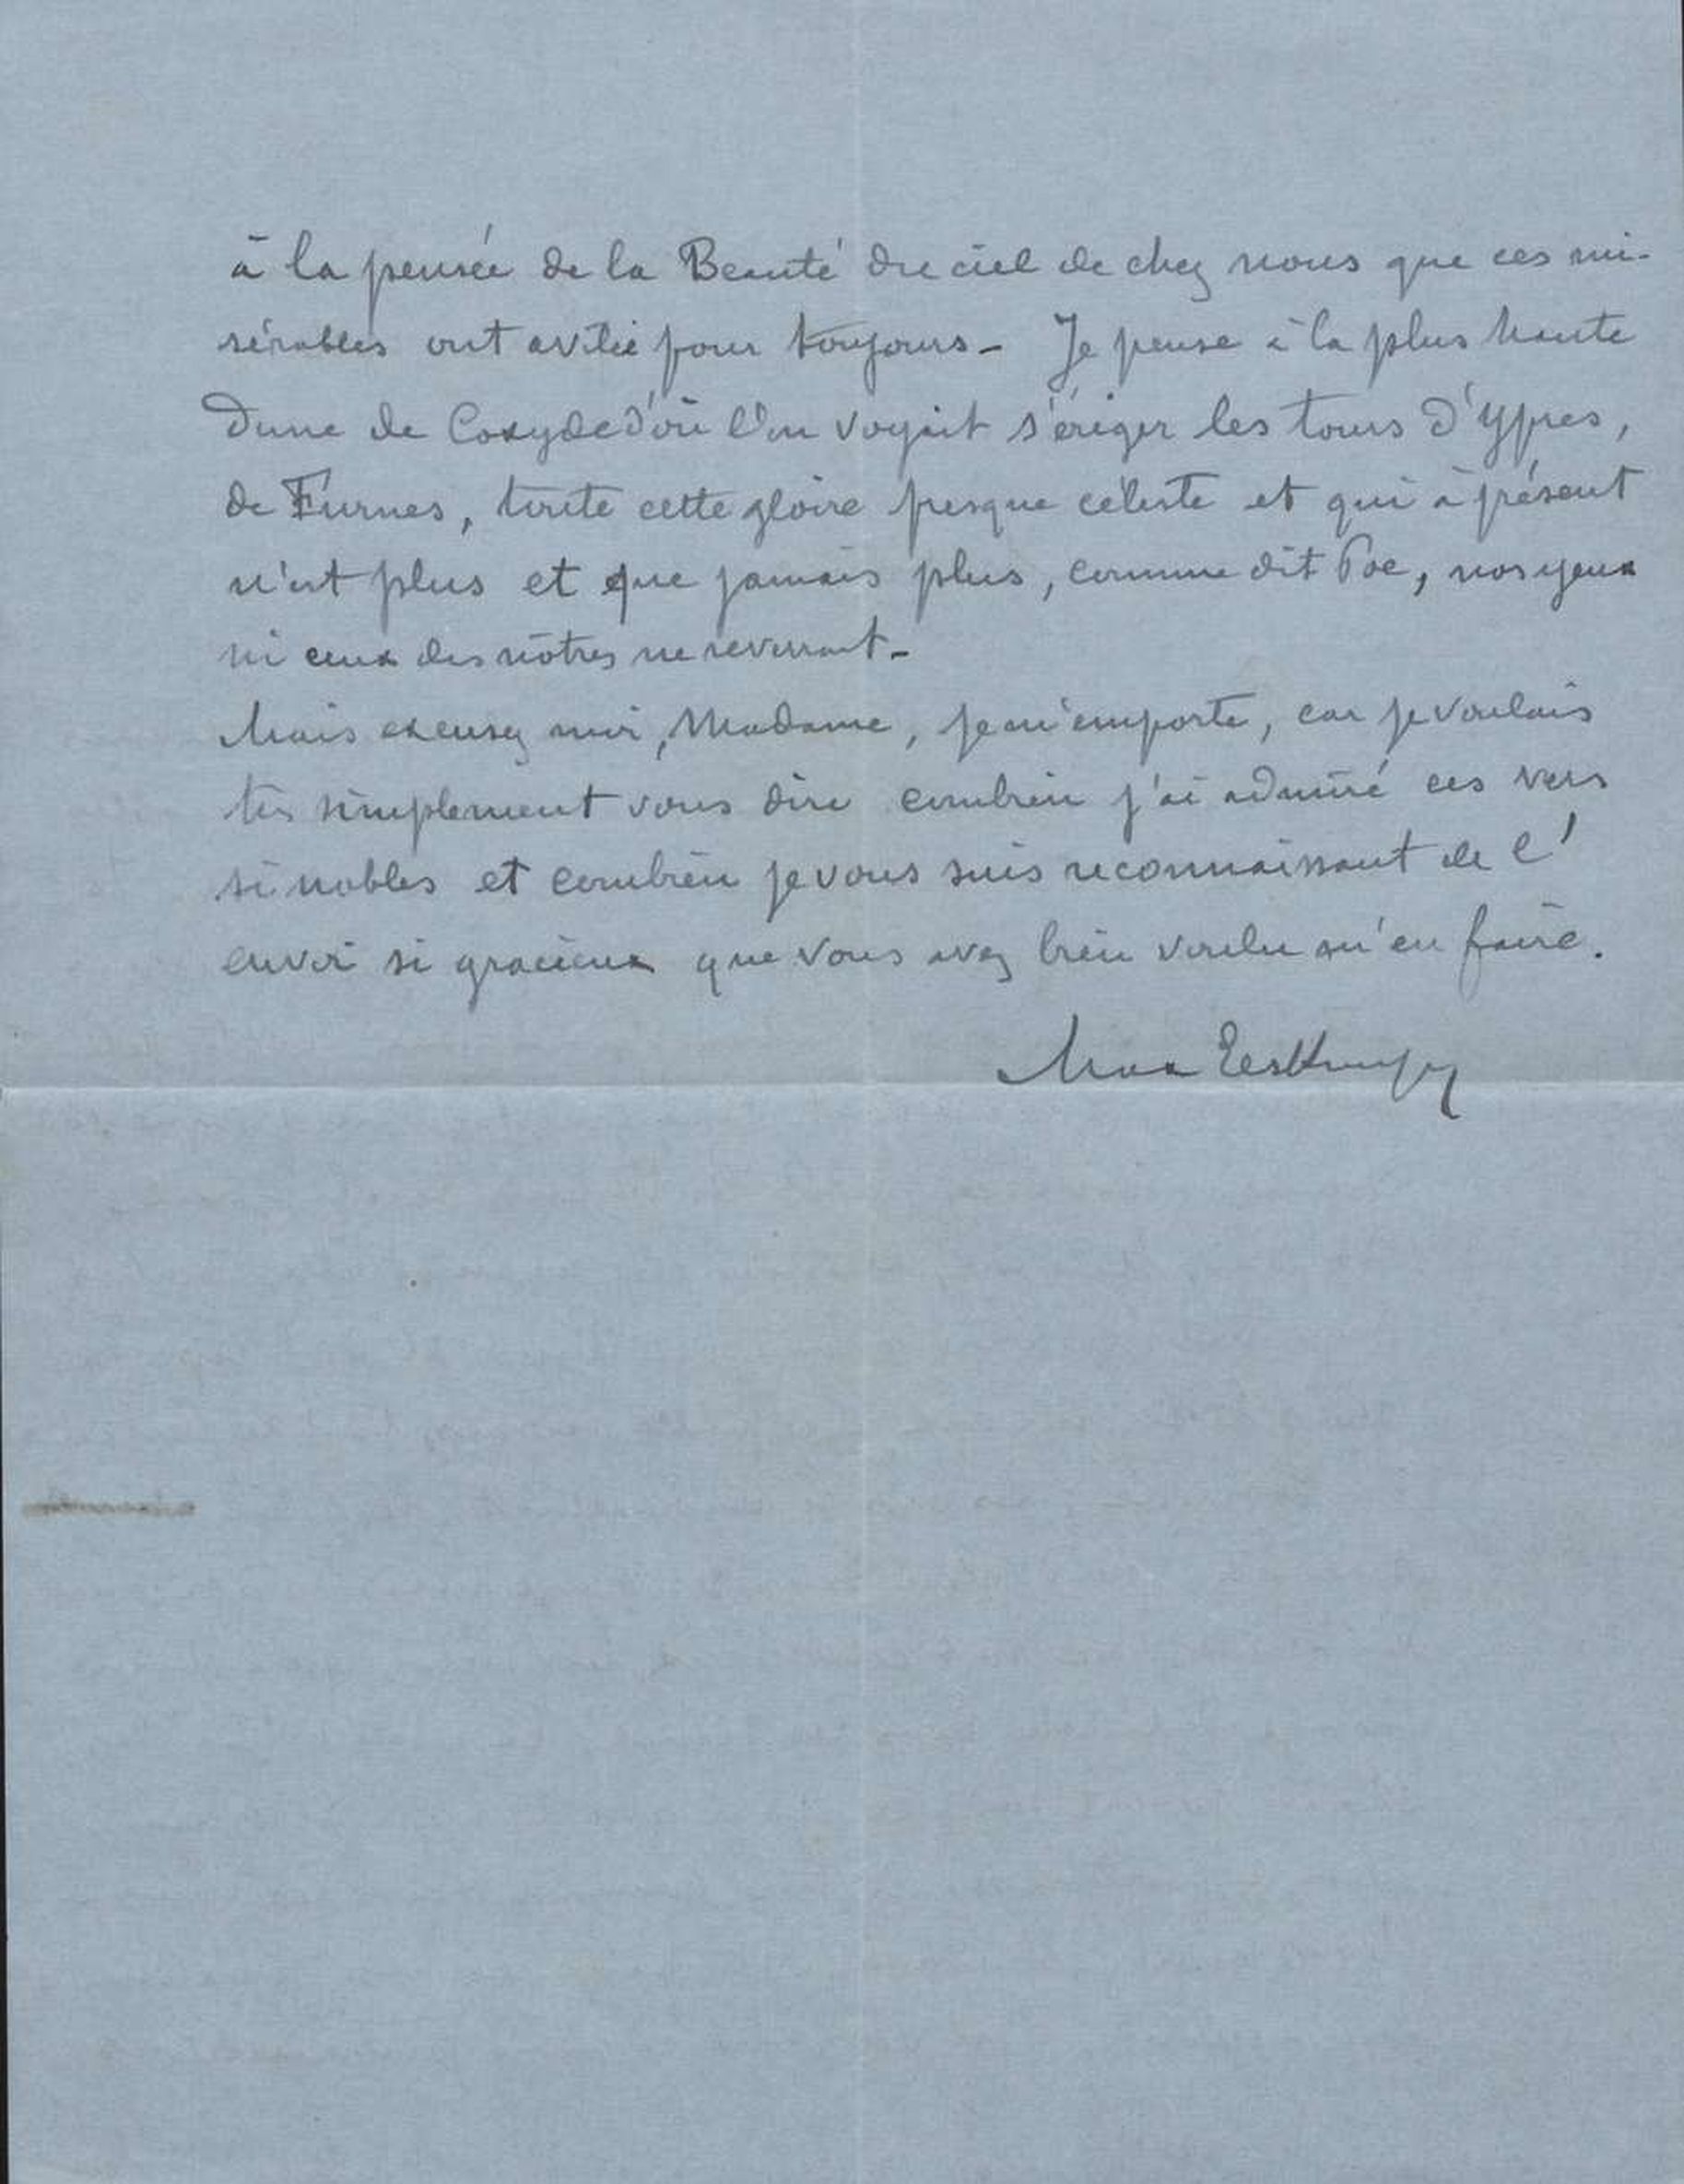 à la pensée de la Beauté du ciel de chez nous que ces mi-
sérables ont avilie pour toujours - Je pense à la plus haute
Dune de Coxyde d'où l'on voyait s'ériger les tours d'Ypres,
de Furnes, toute cette gloire presque céleste et qui à présent
n'est plus et que jamais plus, comme dit Poe, nos yeux
ni ceux des nôtres ne reverront -
Mais excusez moi, Madame, je m'emporte, car je voulais
très simplement vous dire combien j'ai admiré ces vers
si nobles et combien je vous suis reconnaissant de l'
envoi si gracieux que vous avez bien voulu m'en faire.
Max Elskamp